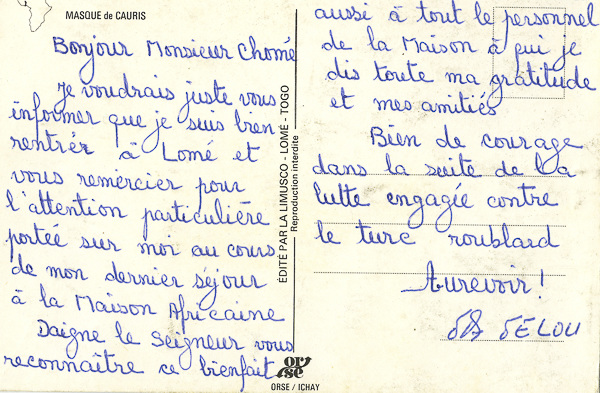 MASQUE de CAURIS
Bonjour Monsieur Chomé
Je voudrais juste vous
informer que je suis bien
rentrér à Lomé et
vous remercier pour
l'attention particulière
portée sur moi au cours
de mon dernier séjour
à la Maison Africaine
Daigne le Seigneur vous
reconnaître ce bienfait
ÉDITÉ PAR LA LIMUSCO - LOMÉ - TOGO
Reproduction interdite
orse
ORSE / ICHAY
aussi à tout le personnel
de la Maison à qui je
dis toute ma gratitude
et mes amitiés
Bien de courage
dans la suite de la
lutte engagée contre
le turc roublard
Aurevoir !